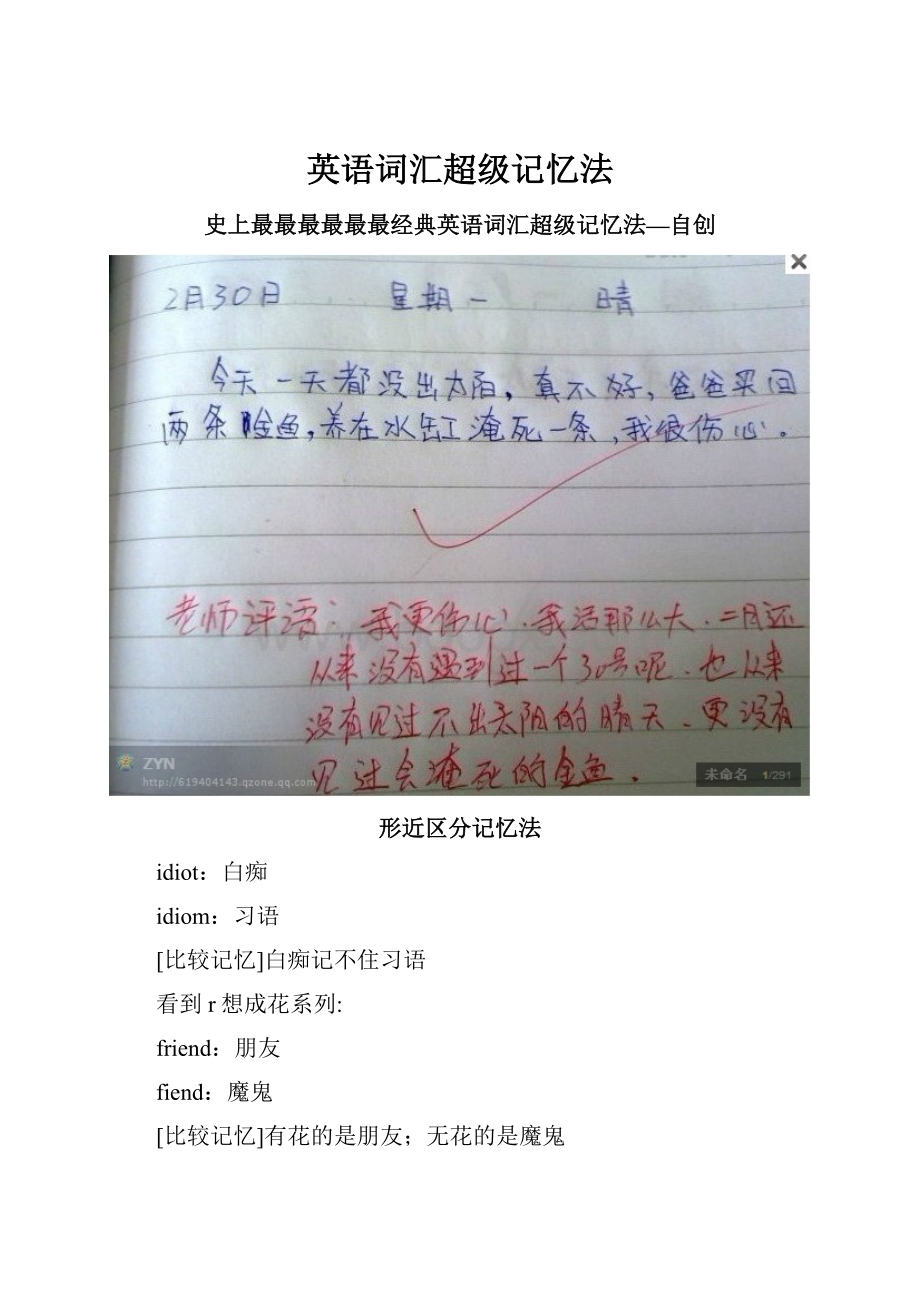 英语词汇超级记忆法
史上最最最最最最经典英语词汇超级记忆法—自创
2月30日 星期一 晴
今天一天都没出太阳，真不好，爸爸买回
两条金鱼，养在水缸淹死一条，我很伤心。
老师评语：我更伤心．我活那么大．二月还
从来没有遇到过一个30号呢．也从来
没有见过不出太阳的晴天．更没有
见过会淹死的金鱼．
ZYN
http://619404143.qzone.qq.com
未命名 1/291
形近区分记忆法
idiot：白痴
idiom：习语
[比较记忆]白痴记不住习语
看到 r 想成花系列:
friend：朋友
fiend：魔鬼
[比较记忆]有花的是朋友；无花的是魔鬼